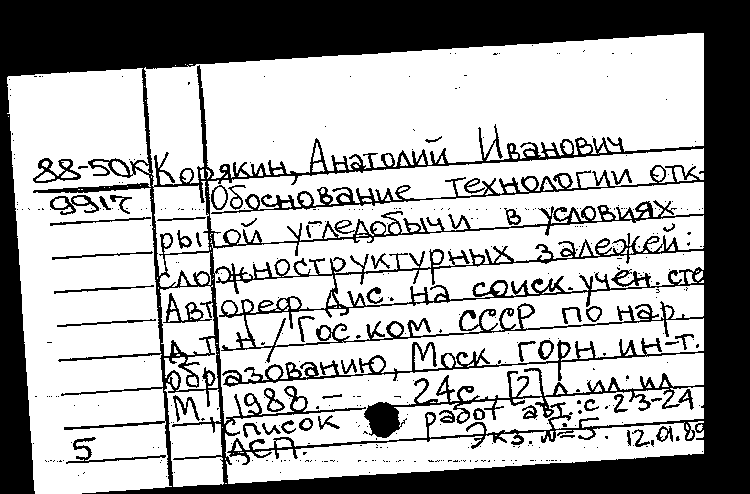 88-50К Корякин, Анатолий Иванович
9917 Обоснование технологии отк-
рытой угледобычи в условиях
сложноструктурных залежей:
Автореф. Дис. на соиск. учен. сте
д.т.н. / Гос. ком. СССР по нар.
образованию, Моск. горн. ин-т.
М., 1988. - 24с., [2] л. ил: ил
список работ авт.: с. 23-24.
5 ДСП. Экз. №5. 12.01.89